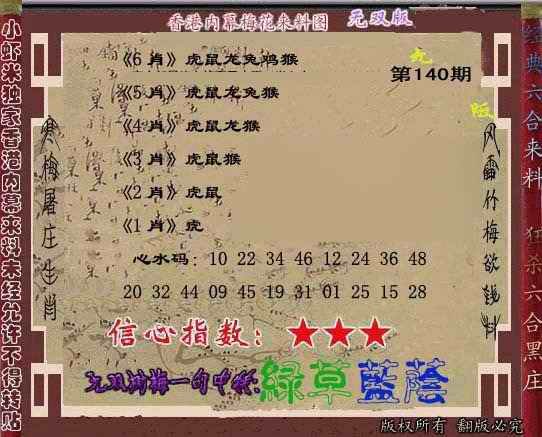 香港内幕梅花来料图 无双版
《6 肖》虎鼠龙兔鸡猴
第140期
《5 肖》虎鼠龙兔猴
《4 肖》虎鼠龙猴
《3 肖》虎鼠猴
《2 肖》虎鼠
《1 肖》虎
心水码：10 22 34 46 12 24 36 48
20 32 44 09 45 19 31 01 25 15 28
信心指数：★★★
无双 梅一句中特:緑草藍蔭
版权所有 翻版必究
小虾米独家香港内幕来料未经允许不得转贴
寒梅屠庄生肖
无 版
风雷竹梅欲钱料
经典六合来料 狂杀六合黑庄